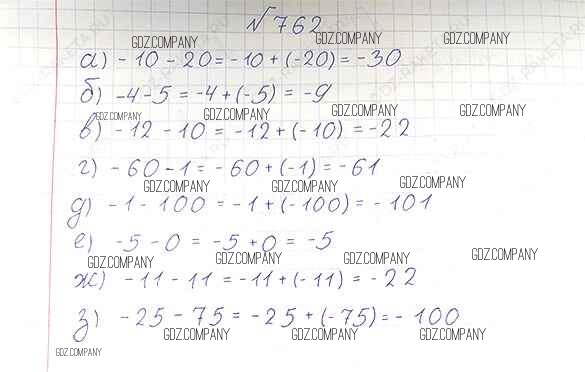 №762
GDZ.COMPANY GDZ.COMPANY GDZ.COMPANY
а) -10 - 20 = -10 + (-20) = -30
б) -4 - 5 = -4 + (-5) = -9
GDZ.COMPANY GDZ.COMPANY GDZ.COMPANY GDZ.COMPANY
в) -12 - 10 = -12 + (-10) = -22
г) -60 - 1 = -60 + (-1) = -61
GDZ.COMPANY GDZ.COMPANY GDZ.COMPANY
д) -1 - 100 = -1 + (-100) = -101
е) -5 - 0 = -5 + 0 = -5
GDZ.COMPANY GDZ.COMPANY GDZ.COMPANY GDZ.COMPANY
ж) -11 - 11 = -11 + (-11) = -22
з) -25 - 75 = -25 + (-75) = -100
GDZ.COMPANY GDZ.COMPANY GDZ.COMPANY
GDZ.COMPANY